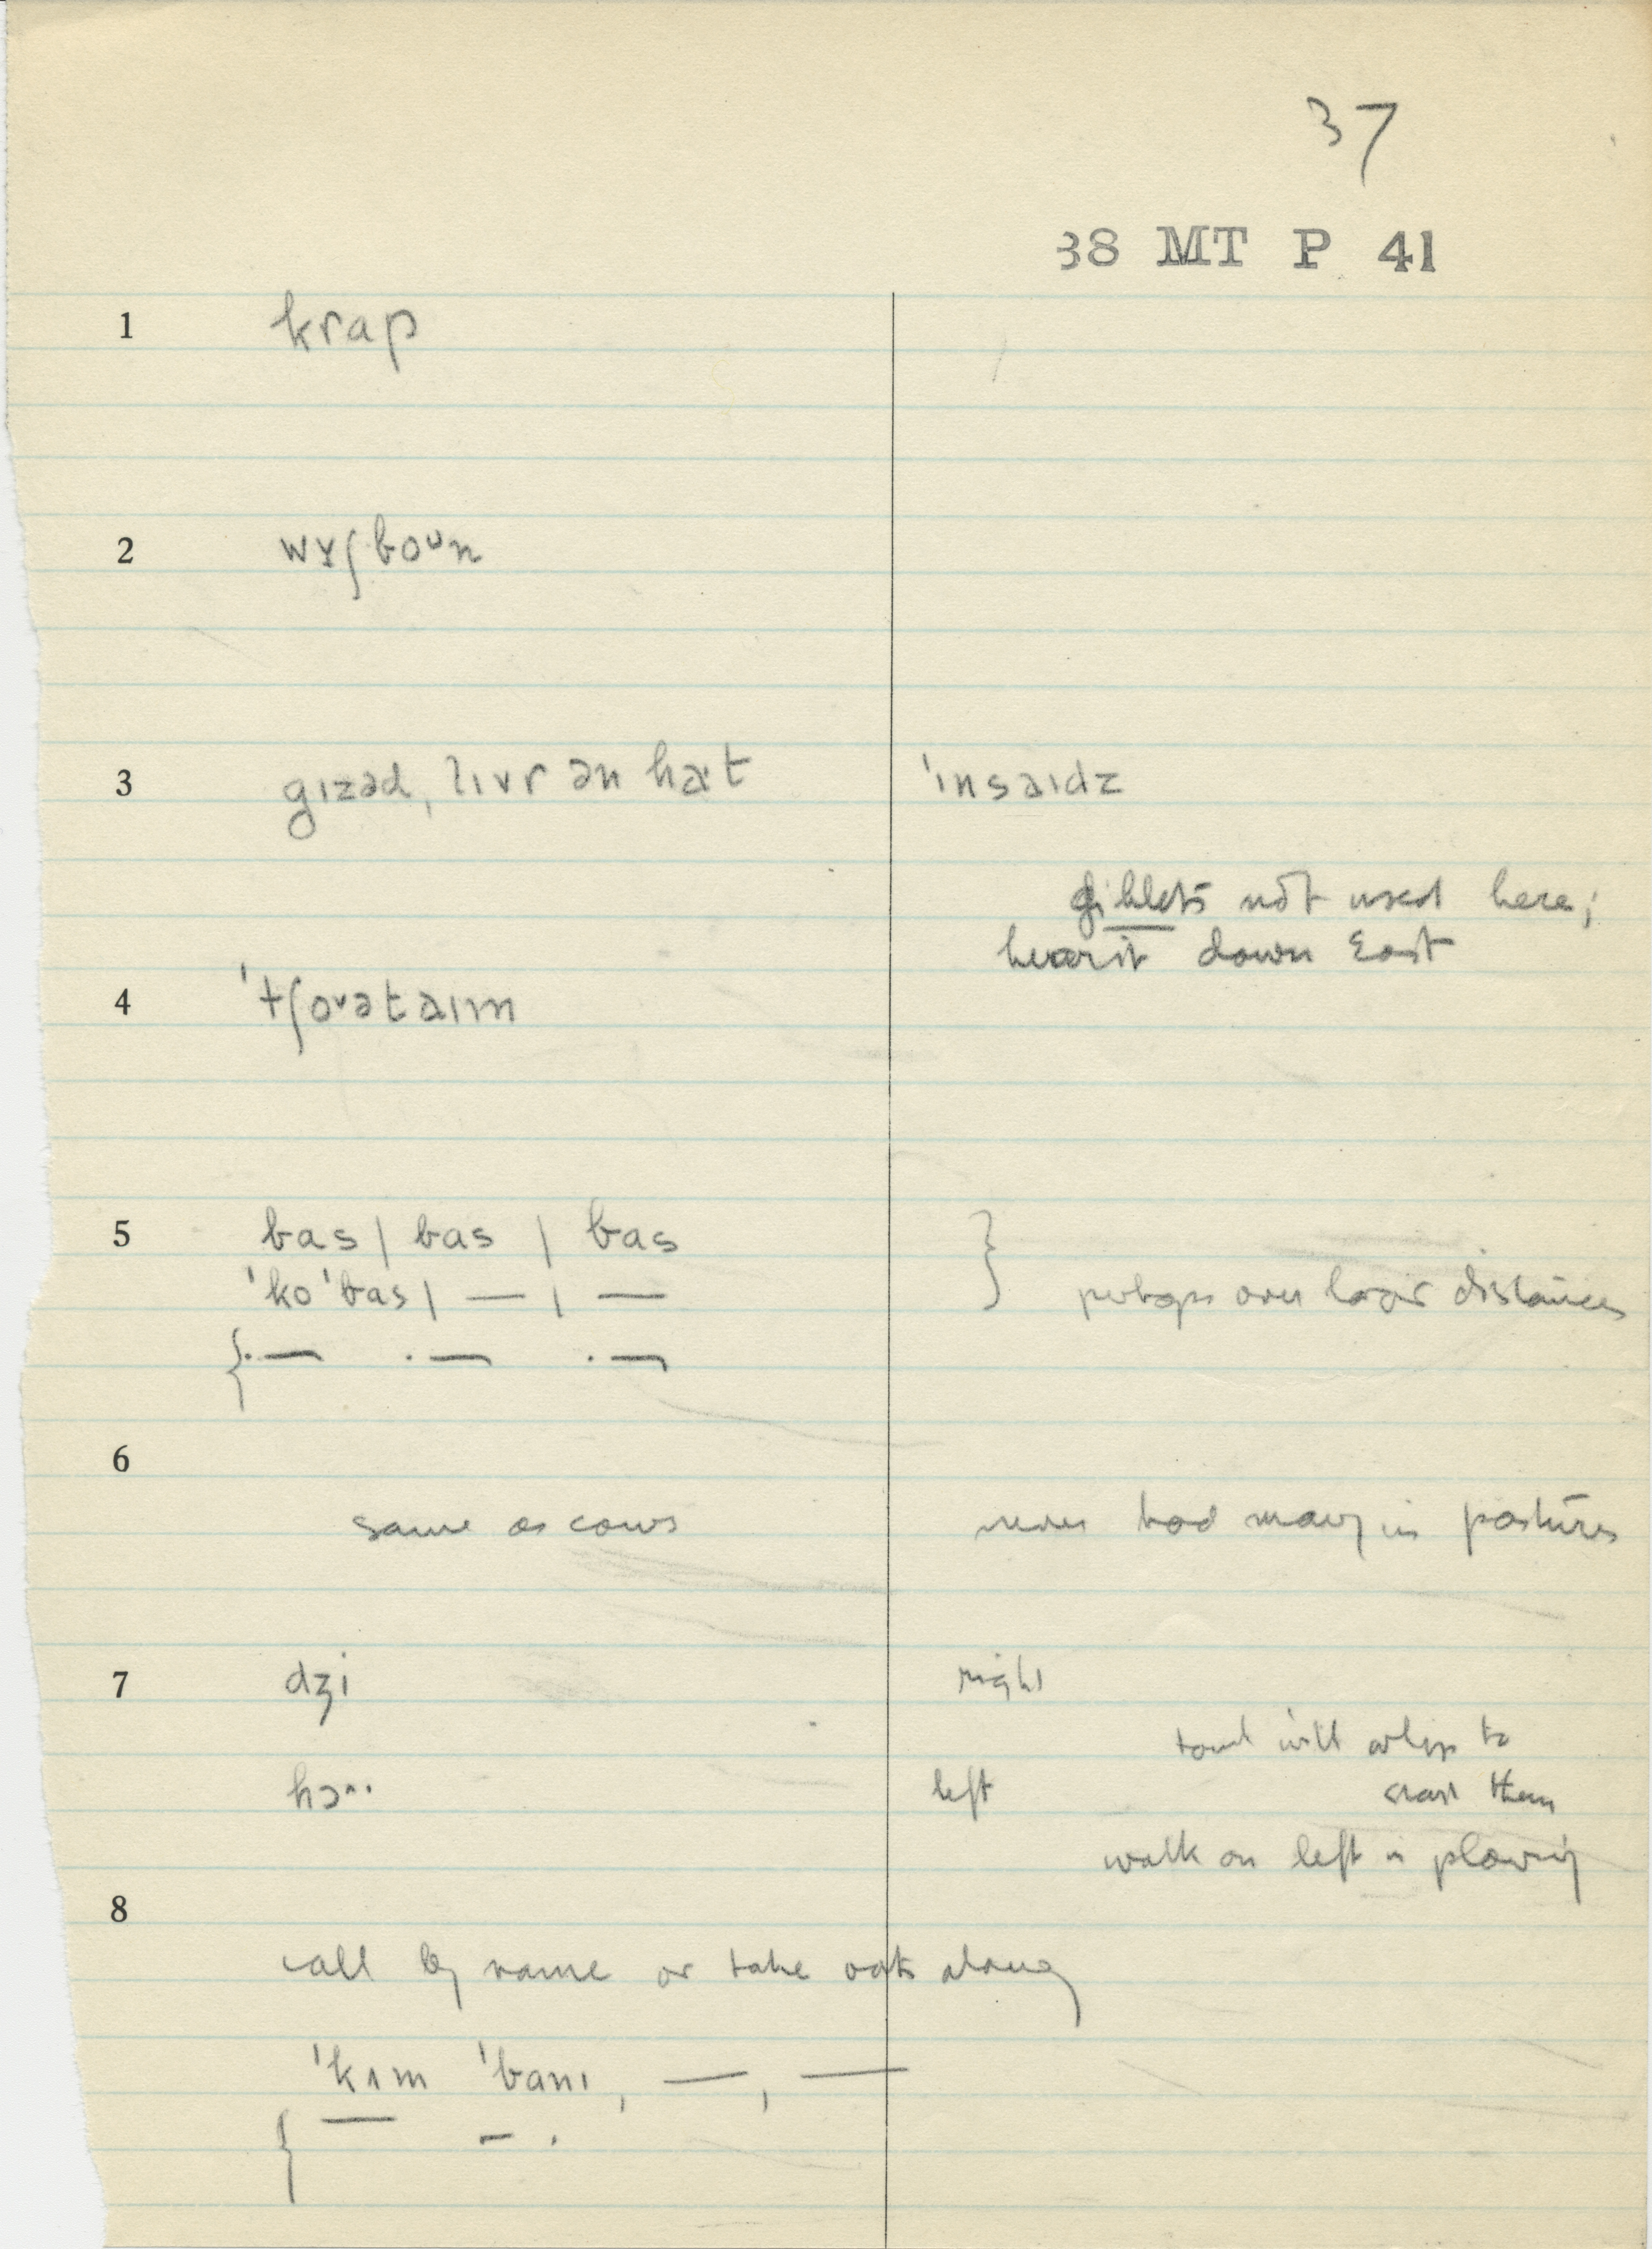 37
38 MT P 41
1 krap
2 wɤʃboᵘn
3 gɪzəd, lɪvr ən hat 'ɪnsaɪdz
giblets not used here;
hears it down East
4 'tʃoᵛətaɪm
5 bas | bas | bas
'ko'bas | — , — perhaps over longer distances
6
same as cows never had many in pastures
7 dʒi right
will to
hɔ left them
walk on left in plowing
8
call by name or take oats along
'kʌm 'banɪ, —, —